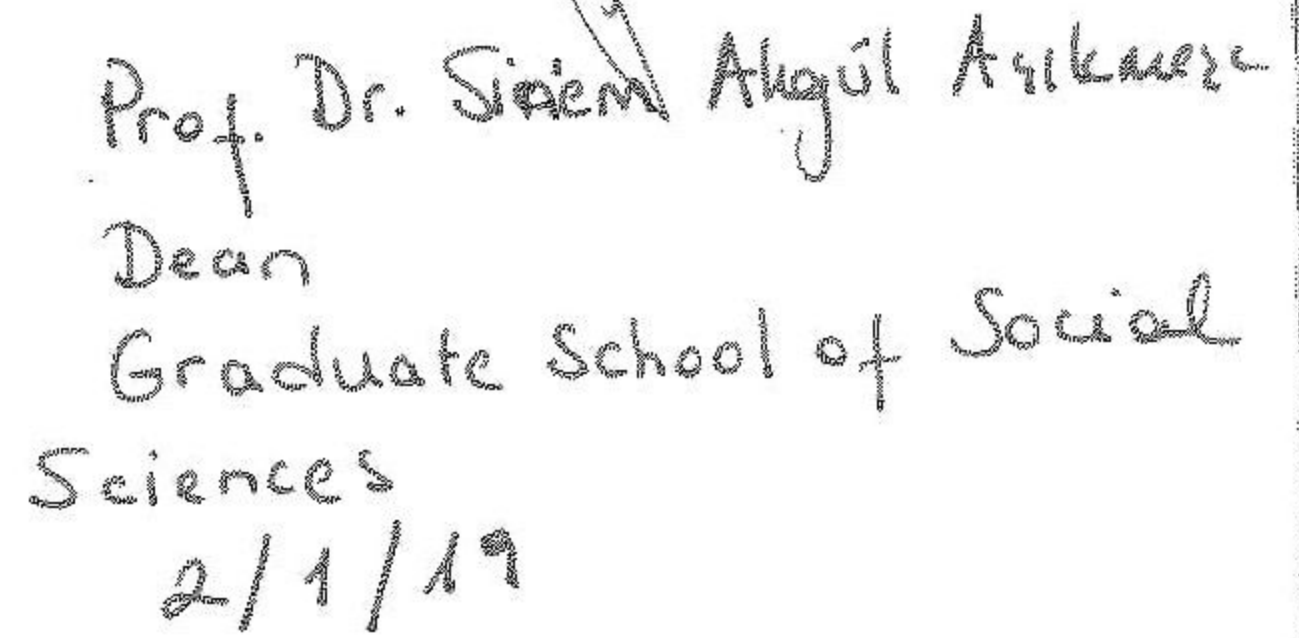 Prof. Dr. Sinem Akgül Açıkmeşe
Dean
Graduate School of Social
Sciences
2/1/19